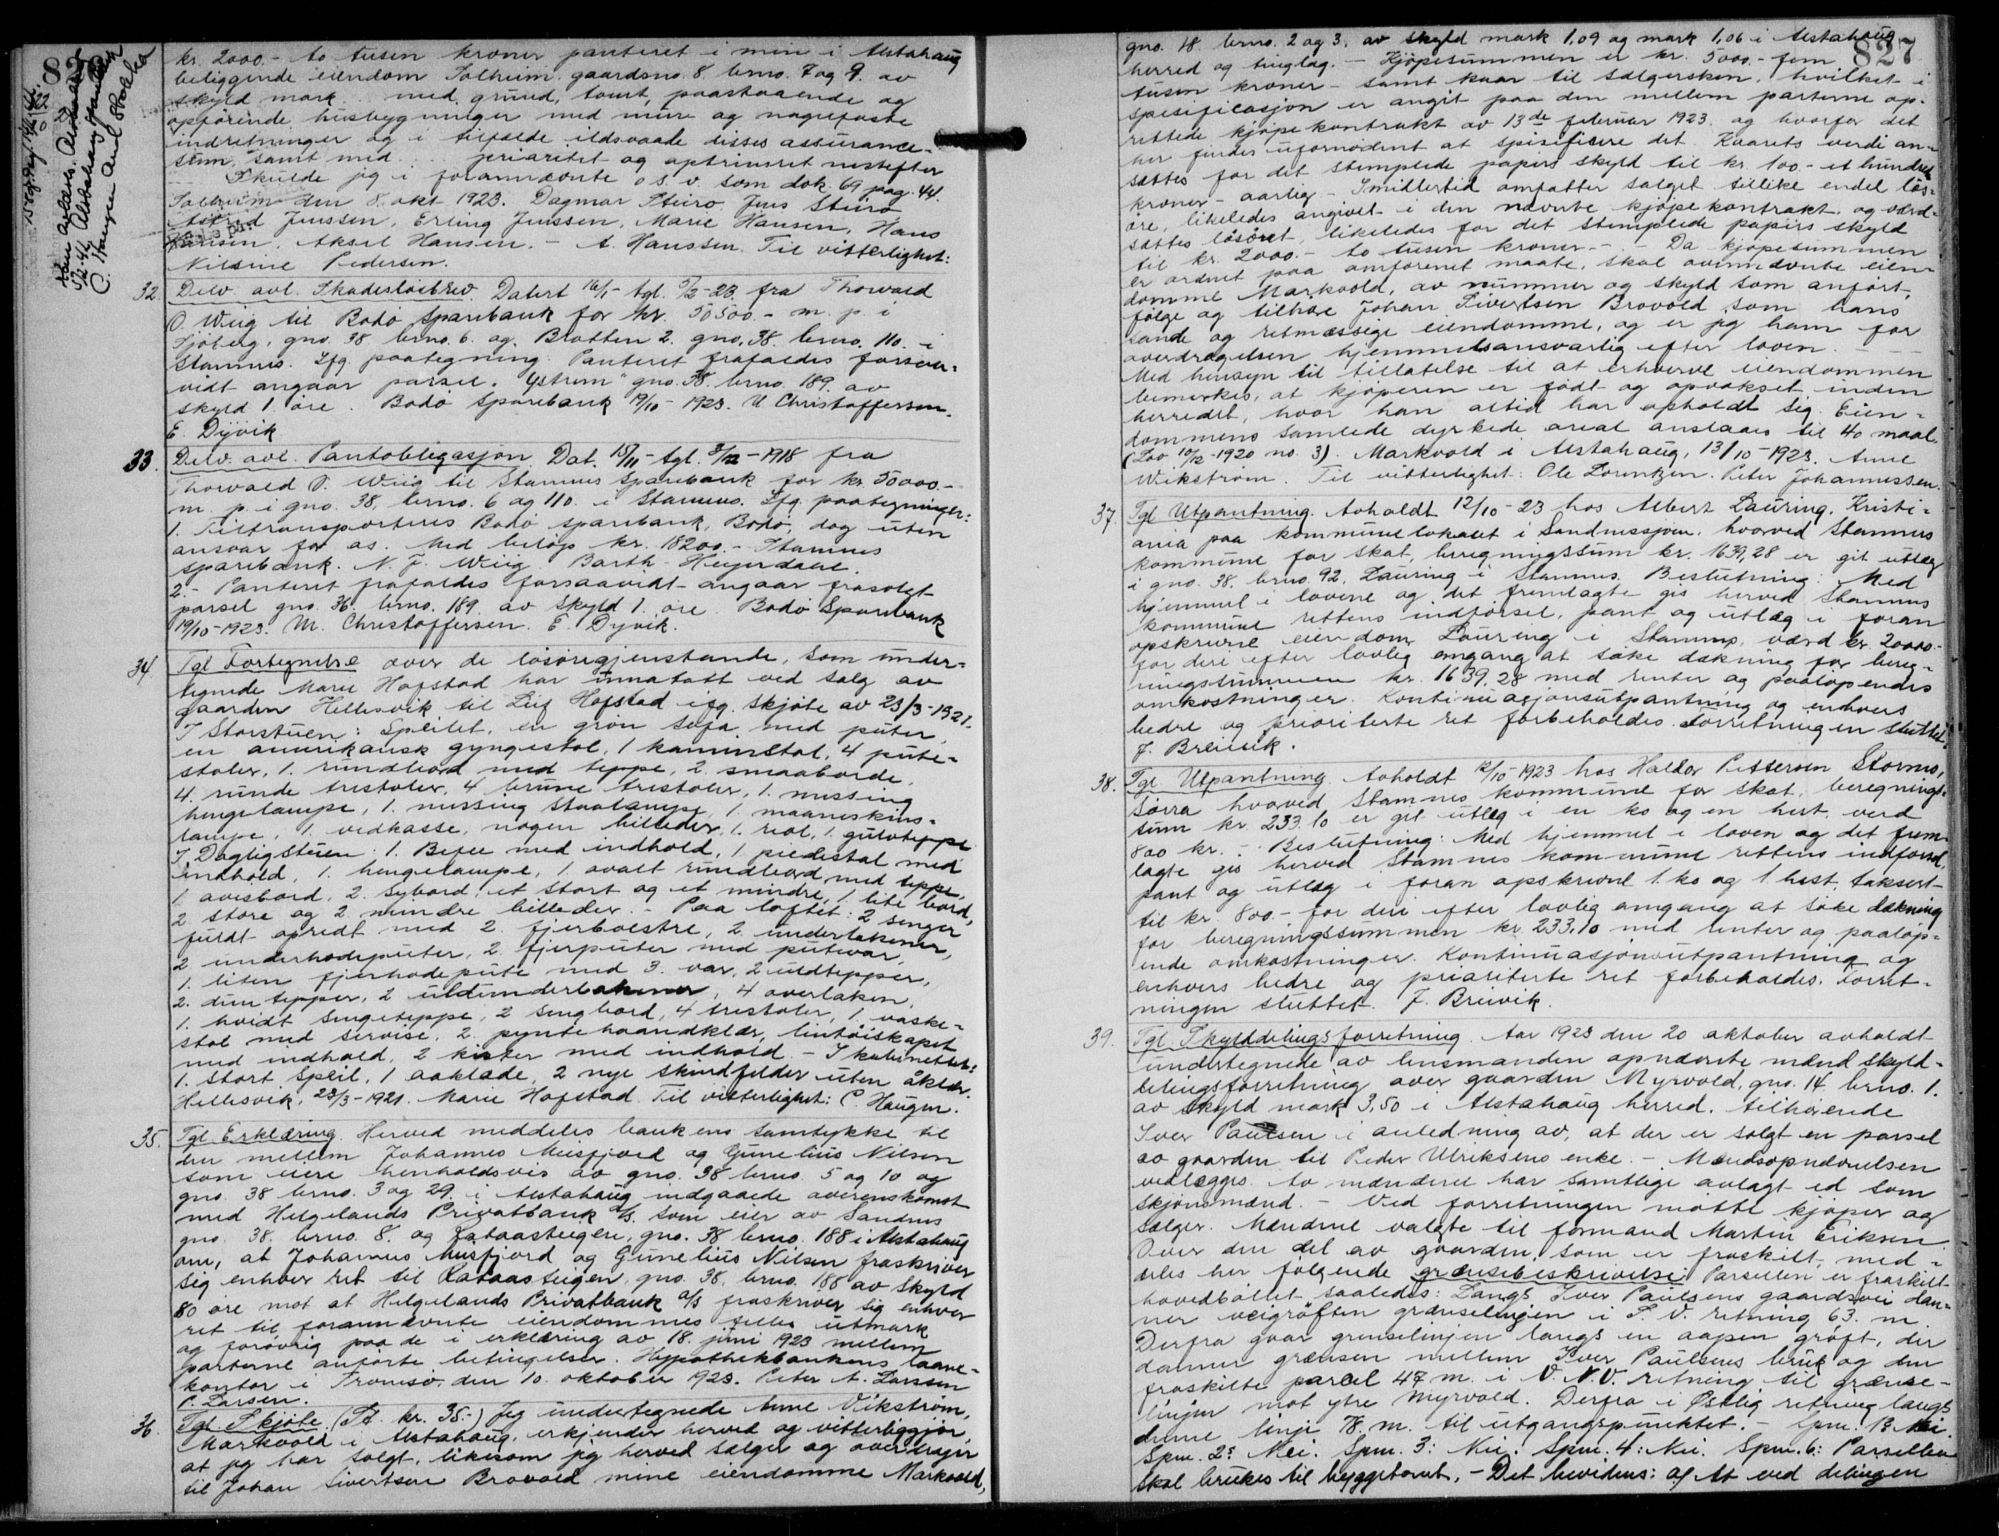 827
kr. 2000.- to tusen kroner panteret i min i Alstahaug
beliggende eiendom Solheim gaardsno. 8 brno. 7 og 9. av
skyld mark med grund, tomt, paastaaende og
opförende husbygninger med mure og naglefaste
indretninger og i tilfælde ildsvaade disses assurance-
sum, samt med prioritet og optrinsret nestefter
Skulde jeg i forannævnte o. s. v. som dok. 69 pag. 44.
Solheim den 8. okt 1923. Dagmar Stüro Jens Stüro
Astrid Jenssen, Erling Jenssen, Marie Hansen, Hans
Hansen, Aksel Hansen. - A. Hanssen. Til vitterlighet:
Nilsine Pedersen.
32. Delv. avl. Skadeslösbrev. Datert 16/1 - tgl. 5/2-23 fra Thorvald
O. Wiig til Bodö Sparebank for kr. 50500.- m. p. i
Sjöberg, gno. 38 brno. 6. og Bratten 2. gno. 38. brno. 110. i
Stamnes. Lfg. paategning: Panteret frafaldes forsaa-
vidt angaar parsel. "Ystrem" gno. 38. brno. 189. av
skyld 1 öre. Bodö Sparebank 19/10-1923. M Christoffersen.
E. Dyvik
33. Delv. avl. Pantobligasjon Dat. 15/11 - tgl. 3/12-1918 fra
Thorvald O. Wiig til Stamnes Sparebank for kr. 50000.-
m. p. i gno. 38, brno. 6 og 110. i Stamnes. Lfg. paategninger:
1. Tiltransporteres Bodö Sparebank, Bodö, dog uten
ansvar for os. Med belöp kr. 18200.- Stamnes
Sparebank. N. J. Wiig. Barth-Heyerdahl.
2.- Panteret frafaldes forsaavidt angaar frasolgt
parsel gno. 36. brno. 189. av skyld 1. öre. Bodö Sparebank
19/10-1923. M. Christoffersen. E. Dyvik.
34. Tgl Fortegnelse over de lösöregjenstande, som under-
tegnede Marie Hofstad har unnatatt ved salg av
gaarden Hellesvik til Leif Hofstad ifg. skjöte av 23/3-1921.
I Storstuen: Speilet, en grön sofa med puter,
en amerikansk gyngestol, 1 kaminstol, 4 pute-
stoler, 1. rundbord med teppe, 2. smaaborde,
4. runde trestoler, 4 brune trestoler, 1. messing
hengelampe, 1. messing staalampe, 1 maaneskins-
lampe, 1 vedkasse, nogen billeder, 1. reol, 1. gulvteppe
I Dagligstuen. 1. Bufee med indhold, 1 piedestal med
indhold, 1. hengelampe, 1 ovalt rundbord med teppe,
1. avisbord, 2. sybord, et stort og et mindre, 1 lite bord,
2. store og 2 mindre billeder. - Paa loftet: 2 senger
fuldt opredt med 2. fjerbolstre, 2 underlakener,
2. underhodeputer, 2. fjerputer med putevar,
1. liten fjerhodepute med 3. var, 2 uldtepper,
2. duntepper, 2 uldunderlakener, 4 overlaken,
1. hvidt sengeteppe, 2 sengbord, 4 trestoler, 1. vaske-
stol med servise, 2. pyntehaandklær, lintöiskapet
med indhold, 2 kister med indhold. - I kabinettet:
1. stort speil, 1 aaklade, 2 nye skindfelder uten åklær.
Hellesvik, 23/3-1921. Marie Hofstad. Til vitterlighet: C Haugen.
35. Tgl Erklæring. Herved meddeles bankens samtykke til
den mellem Johannes Meisfjord og Gunelius Nilsen
som eiere henholdsvis av gno. 38 brno. 5 og 10 og
gno. 38 brno. 3 og 29. i Alstahaug indgaaede overenskomst
med Helgelands Privatbank a/s. som eier av Sandnes
gno. 38. brno. 8. og Rataasteigen, gno. 38 brno. 188 i Alstahaug
om, at Johannes Meisfjord og Gunelius Nilsen fraskriver
sig enhver ret til Rataasteigen, gno. 38, brno. 188 av skyld
80 öre mot at Helgelands Privatbank a/s fraskriver sig enhver
ret til forannævnte eiendommes felles utmark
og forövrig paa de i erklæring av 18. juni 1923 mellem
parterne anförte betingelser. Hypothekbankens laane-
kontor i Tromsö, den 10. oktober 1923. Peter A. Larssen
P. Larsen.
36. Tgl. Skjöte. (St. kr. 35.-) Jeg undertegnede Anne Vikström,
Markvold i Alstahaug, erkjender herved og vitterliggjör
at jeg har solgt, likesom jeg herved sælger og overdrager
til Johan Sivertsen Brovold mine eiendomme Markvold,
gno. 18. brno. 2 og 3. av skyld mark 1,09 og mark 1,06 i Alstahaug
herred og tinglag. - Kjöpesummen er kr. 5000.- fem
tusen kroner - samt kaar til sælgersken, hvilket i
spesificasjon er angit paa den mellem parterne op-
rettede kjöpekontrakt av 13de februar 1923. og hvorfor det
her findes ufornödent at spesificere det. Kaarets verdi an-
sættes for det stemplede papirs skyld til kr. 100.- et hundred
kroner - aarlig. - Imidlertid omfatter salget tillike endel lös-
öre, likeledes angivet i den nævnte kjöpekontrakt, og værd-
sættes lösöret, likeledes for det stemplede papirs skyld
til kr. 2000.- to tusen kroner.- - Da kjöpesummen
er ordnet paa omforenet maate, skal ovennævnte eien-
domme Markvold, av nummer og skyld som anfört,
fölge og tilhöre Johan Sivertsen Brovold som hans
sande og retmæssige eiendomme, og er jeg ham for
overdragelsen hjemmelsansvarlig efter loven. -
Med hensyn til tillatelse til at erhverve eiendommen
bemerkes, at kjöperen er födt og opvokset inden
herredet, hvor han altid har opholdt sig. Eien-
dommens samlede dyrkede areal anslaaes til 40 maal.
(Lov 10/12-1920 no. 3). Markvold i Alstahaug, 13/10-1923. Anne
Wikström. Til vitterlighet: Ole Lorentzen. Peter Johannessen.
37. Tgl Utpantning. Avholdt 12/10-23 hos Albert Lauring, Kristi-
ania paa kommunelokalet i Sandnessjöen, hvorved Stamnes
kommune for skat, beregningssum kr. 1639,28 er git utlæg
i gno. 38. brno. 92. Lauring i Stamnes. Beslutning: Med
hjemmel i lovene og det fremlagte gis herved Stamnes
kommune rettens indförsel, pant og utlæg i foran
opskrevne eiendom Lauring i Stamnes, værd kr. 20000.-
for deri efter lovlig omgang at söke dækning for bereg-
ningssummen kr. 1639,28 med renter og paalöpendes
omkostninger. Kontinuasjonsutpantning og enhvers
bedre og prioriterte ret forbeholdes. Forretningen sluttet.
J. Breivik.
38. Tgl Utpantning. Avholdt 12/10-1923 hos Haldor Pettersen Stormo,
Sörra hvorved Stamnes kommune for skat, beregnings-
sum kr. 233.10 er git utlæg i en ko og en hest, verd
800 kr. - Beslutning: Med hjemmel i loven og det frem-
lagte gis herved Stamnes kommune rettens indförsel,
pant og utlæg i foran opskrevne 1. ko og 1 hest, taksert
til kr. 800.- for deri efter lovlig omgang at söke dækning
for beregningssummen kr. 233,10 med renter og paalöp-
ende omkostninger. Kontinuasjonsutpantning og
enhvers bedre og prioriterte ret forbeholdes. Forret-
ningen sluttet. J. Breivik.
39. Tgl. Skylddelingsforretning. Aar 1923 den 20 oktober avholdt
undertegnede av lensmanden opnævnte mænd skyld-
delingsforretning over gaarden Myrvold, gno. 14 brno. 1.
av skyld mark 3,50 i Alstahaug herred. tilhörende
Iver Paulsen i anledning av, at der er solgt en parsel
av gaarden til Peder Ulriksens enke. - Mændsopnævnelsen
vedlægges. Av mændene har samtlige avlagt ed som
skjönsmænd. - Ved forretningen mötte kjöper og
sælger. Mændene valgte til formand Martin Eriksen
Over den del av gaarden, som er fraskilt, med-
deles her fölgende grænsebeskrivelse: Parsellen er fraskilt
hovedbölet saaledes: Langs Iver Paulsens gaardsvei dan-
ner veigröften grænselinjen i S. V. retning 63. m.
Derfra gaar grenselinjen langs en aapen gröft, der
danner grænsen mellem Iver Paulsens bruk og den
fraskilte parcel 47 m. i V. N. V. retning til grænse-
linjen mot ytre Myrvold. Derfra i Östlig retning langs
denne linje 78. m. til utgangspunktet. - Spm. 1: Nei.
Spm. 2: Nei. Spm. 3: Nei. Spm. 4: Nei. Spm. 6: Parsellen
skal brukes til byggetomt. - Det bevidnes: a/ At ved delingen